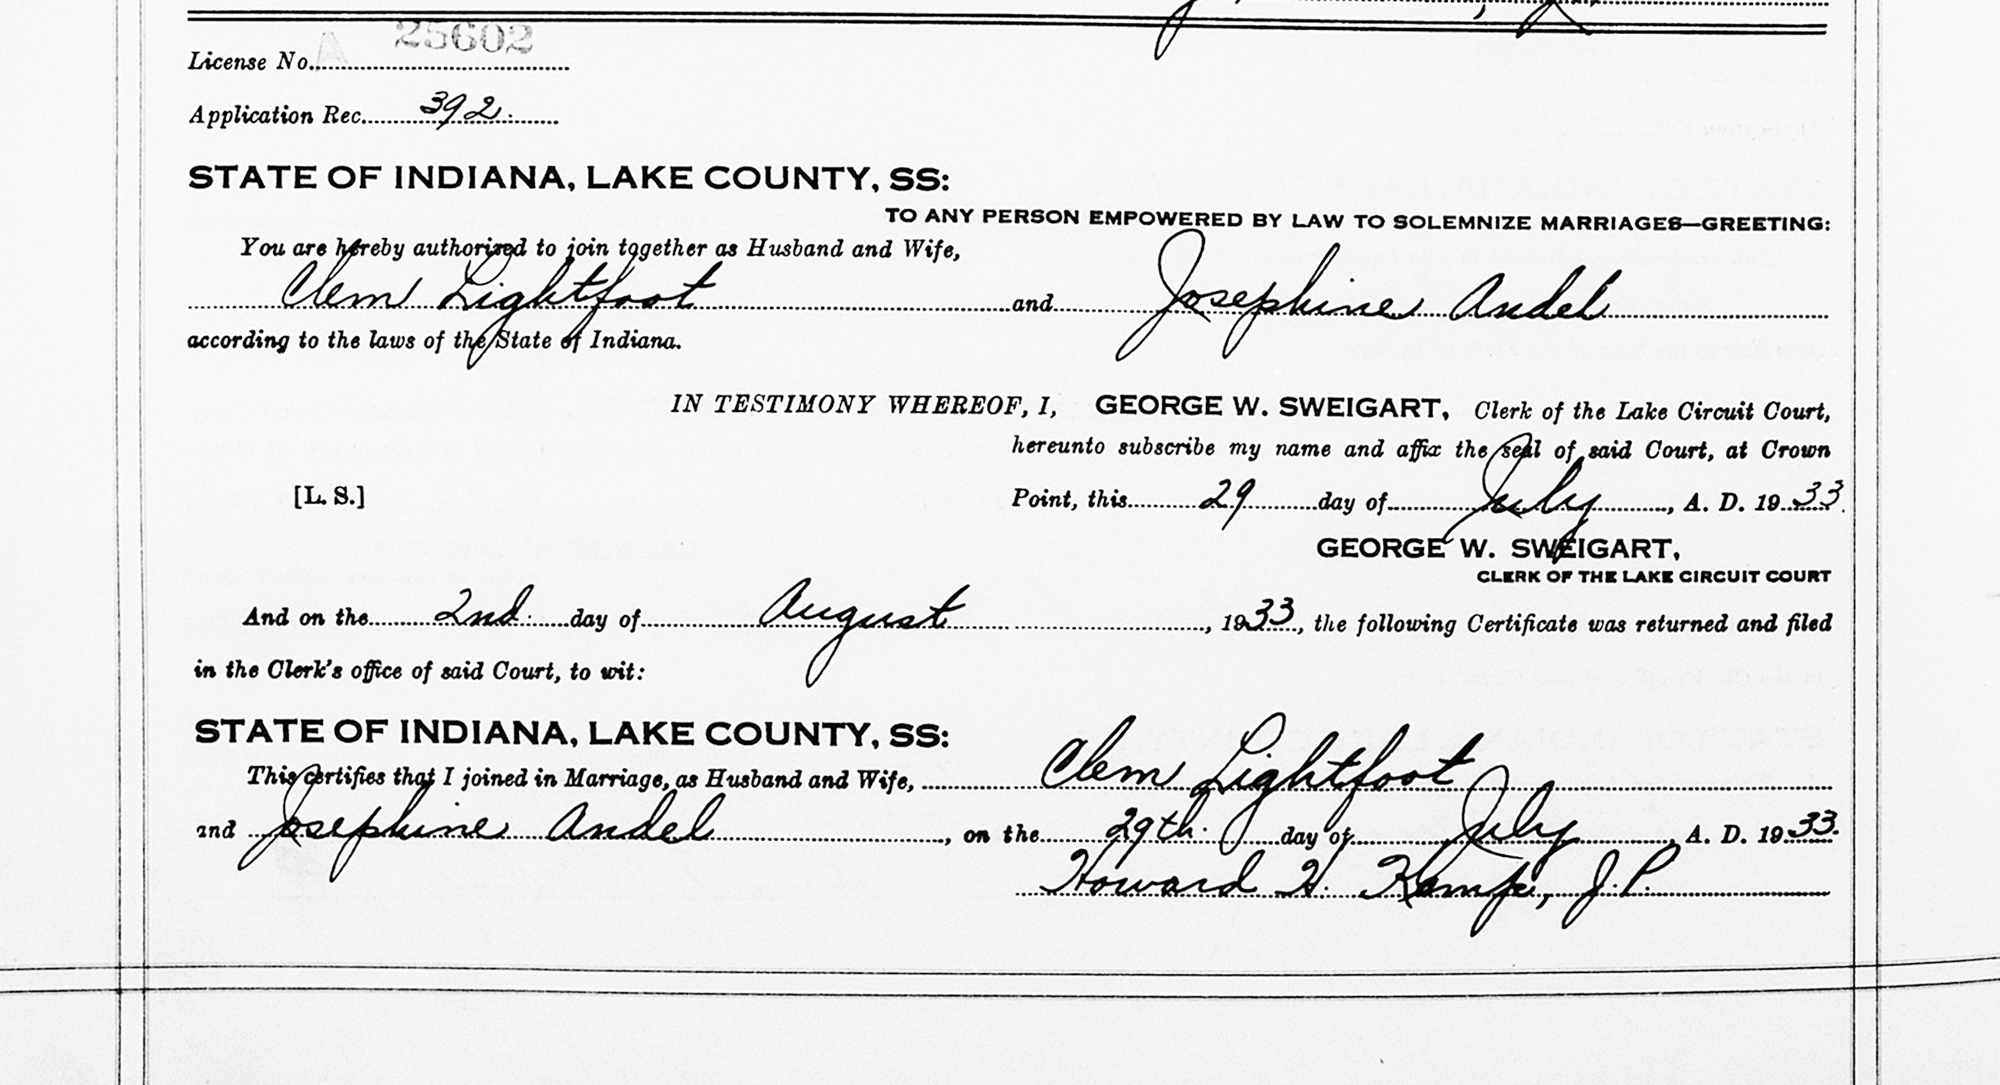 A 25602
License No.
Application Rec. 392.
STATE OF INDIANA, LAKE COUNTY, SS:
TO ANY PERSON EMPOWERED BY LAW TO SOLEMNIZE MARRIAGES—GREETING:
You are hereby authorized to join together as Husband and Wife,
Clem Lightfoot and Josephine Andel
according to the laws of the State of Indiana.
IN TESTIMONY WHEREOF, I, GEORGE W. SWEIGART, Clerk of the Lake Circuit Court,
hereunto subscribe my name and affix the seal of said Court, at Crown
[L. S.] Point, this 29 day of July, A. D. 1933.
GEORGE W. SWEIGART,
CLERK OF THE LAKE CIRCUIT COURT
And on the 2nd. day of August, 1933, the following Certificate was returned and filed
in the Clerk's office of said Court, to wit:
STATE OF INDIANA, LAKE COUNTY, SS:
This certifies that I joined in Marriage, as Husband and Wife, Clem Lightfoot
and Josephine Andel, on the 29th. day of July, A. D. 1933.
Howard H. Kemp, J. P.